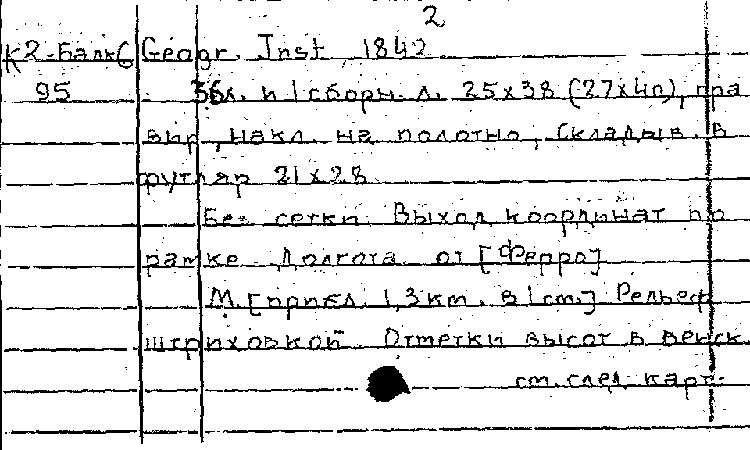 2
К2-Балк6 Geogr. Inst, 1842
95 36л. и 1 сборн. л. 25х38 (27х40), гра
вир, накл. на полотно, складыв. в
футляр 21х28
Без сетки. Выход координат по
рамке. Долгота от [Ферро]
М. [прибл. 1,3 км. в 1 см.] Рельеф
штриховкой. Отметки высот в венск.
см. след. карт.